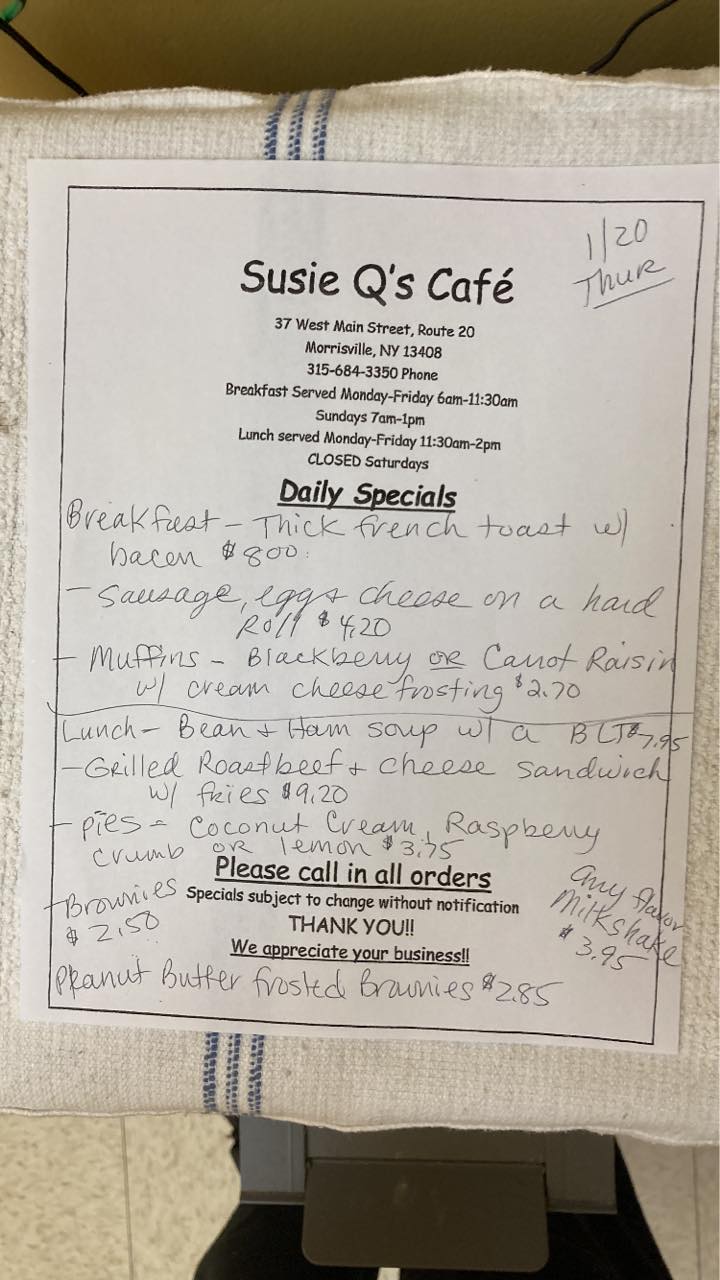 1/20
Thur
Susie Q's Café
37 West Main Street, Route 20
Morrisville, NY 13408
315-684-3350 Phone
Breakfast Served Monday-Friday 6am-11:30am
Sundays 7am-1pm
Lunch served Monday-Friday 11:30am-2pm
CLOSED Saturdays
Daily Specials
Breakfast - Thick french toast w/
bacon $8.00
- Sausage, egg + cheese on a hard
Roll $4.20
- Muffins - Blackberry or Carrot Raisin
w/ cream cheese frosting $2.70
Lunch - Bean + Ham soup w/ a BLT $7.95
- Grilled Roastbeef + cheese sandwich
w/ fries $9.20
- pies - Coconut Cream, Raspberry
crumb or lemon $3.75
Please call in all orders
- Brownies
$2.50
Specials subject to change without notification
THANK YOU!!
We appreciate your business!!
any flavor
Milkshake
$3.95
Peanut Butter frosted Brownies $2.85